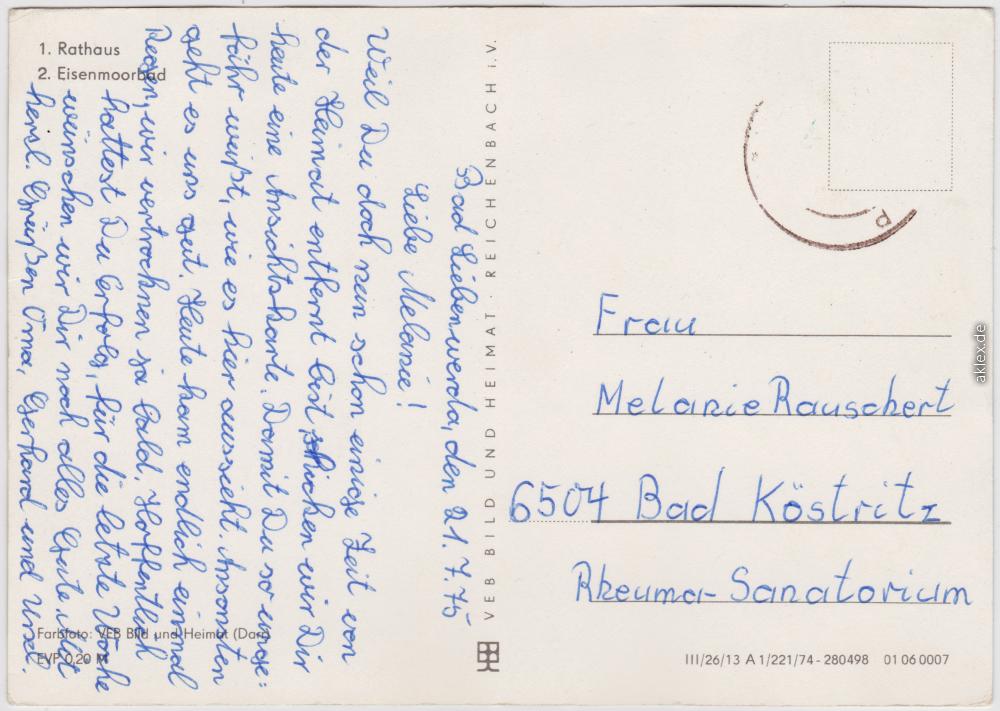 1. Rathaus
2. Eisenmoorbad
Bad Liebenwerda, den 21.7.75
Liebe Melanie!
Weil Du doch nun schon einige Zeit von
der Heimat entfernt bist, schicken wir Dir
heute eine Ansichtskarte. Damit Du so unge=
fähr weißt, wie es hier aussieht. Ansonsten
geht es uns gut. Heute kam endlich einmal
Regen, wir vertrocknen ja bald. Hoffentlich
hattest Du Erfolg, für die letzte Woche
wünschen wir Dir noch alles Gute. Mit
herzl. Grüßen Oma, Gerhard und Ursel.
Farbfoto: VEB Bild und Heimat (Darr)
EVP 0,20 M
VEB BILD UND HEIMAT · REICHENBACH i. V.
Frau
Melanie Rauschert
6504 Bad Köstritz
Rheuma-Sanatorium
III/26/13 A 1/221/74 - 280498 01 06 0007
aklex.de